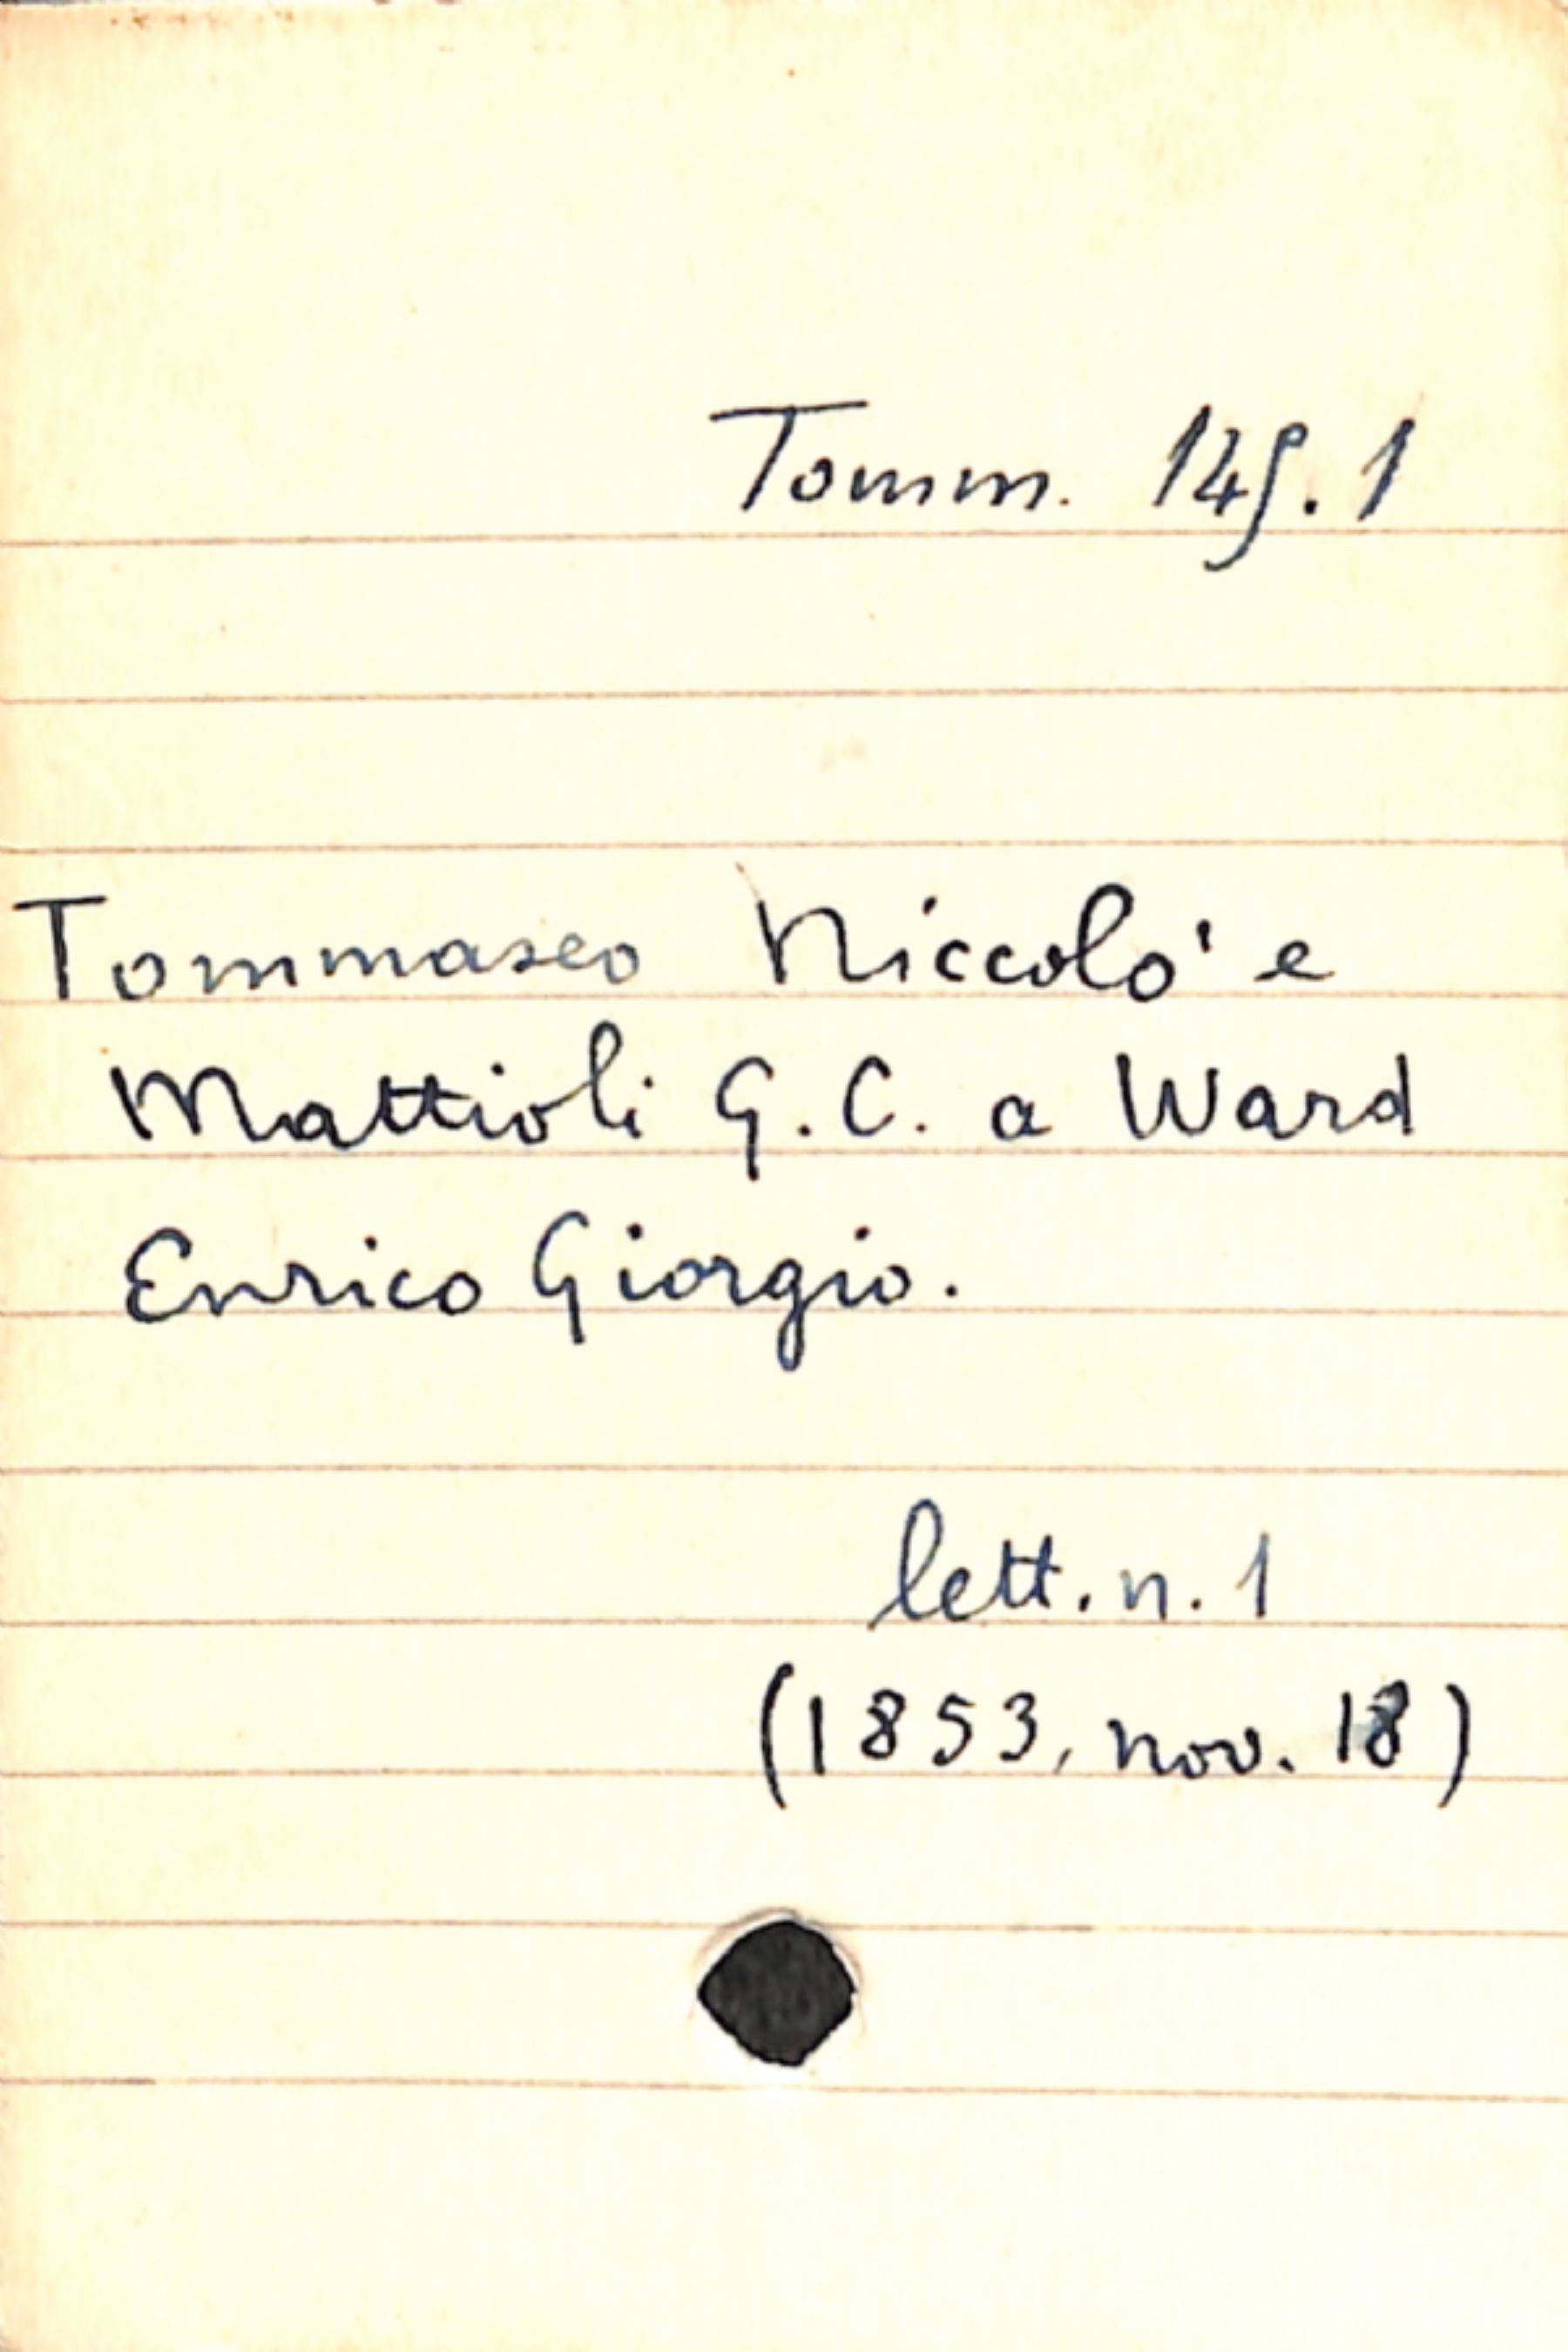 Tomm. 145.1
Tommaseo Niccolo' e
Mattioli G.C. a Ward
Enrico Giorgio.
lett. n. 1
(1853, nov. 18)